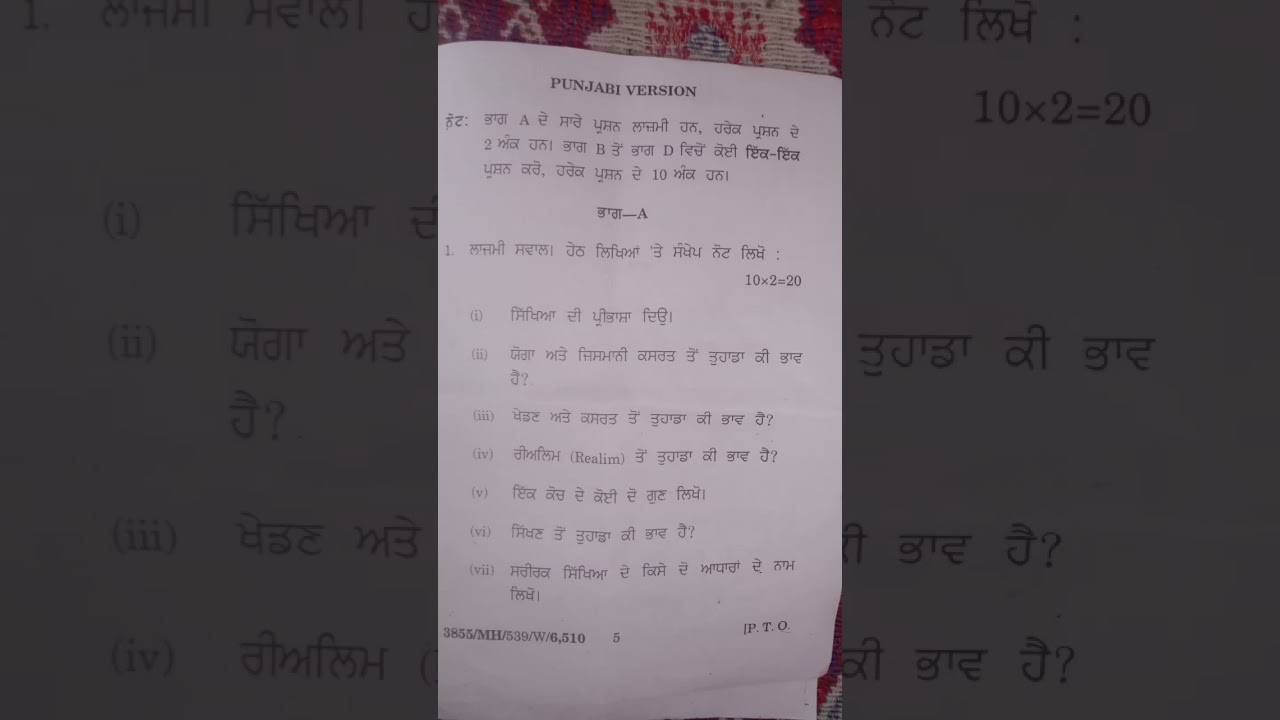 PUNJABI VERSION
ਨੋਟ: ਭਾਗ A ਦੇ ਸਾਰੇ ਪ੍ਰਸ਼ਨ ਲਾਜ਼ਮੀ ਹਨ, ਹਰੇਕ ਪ੍ਰਸ਼ਨ ਦੇ
2 ਅੰਕ ਹਨ। ਭਾਗ B ਤੋਂ ਭਾਗ D ਵਿਚੋਂ ਕੋਈ ਇੱਕ-ਇੱਕ
ਪ੍ਰਸ਼ਨ ਕਰੋ, ਹਰੇਕ ਪ੍ਰਸ਼ਨ ਦੇ 10 ਅੰਕ ਹਨ।
ਭਾਗ—A
1. ਲਾਜਮੀ ਸਵਾਲ। ਹੇਠ ਲਿਖਿਆਂ 'ਤੇ ਸੰਖੇਪ ਨੋਟ ਲਿਖੋ :
10×2=20
(i) ਸਿੱਖਿਆ ਦੀ ਪ੍ਰੀਭਾਸ਼ਾ ਦਿਉ।
(ii) ਯੋਗਾ ਅਤੇ ਜਿਸਮਾਨੀ ਕਸਰਤ ਤੋਂ ਤੁਹਾਡਾ ਕੀ ਭਾਵ
ਹੈ?
(iii) ਖੇਡਣ ਅਤੇ ਕਸਰਤ ਤੋਂ ਤੁਹਾਡਾ ਕੀ ਭਾਵ ਹੈ?
(iv) ਰੀਅਲਿਮ (Realim) ਤੋਂ ਤੁਹਾਡਾ ਕੀ ਭਾਵ ਹੈ?
(v) ਇੱਕ ਕੋਚ ਦੇ ਕੋਈ ਦੋ ਗੁਣ ਲਿਖੋ।
(vi) ਸਿੱਖਣ ਤੋਂ ਤੁਹਾਡਾ ਕੀ ਭਾਵ ਹੈ?
(vii) ਸਰੀਰਕ ਸਿੱਖਿਆ ਦੇ ਕਿਸੇ ਦੋ ਆਧਾਰਾਂ ਦੇ ਨਾਮ
ਲਿਖੋ।
3855/MH/539/W/6,510 5 [P. T. O.